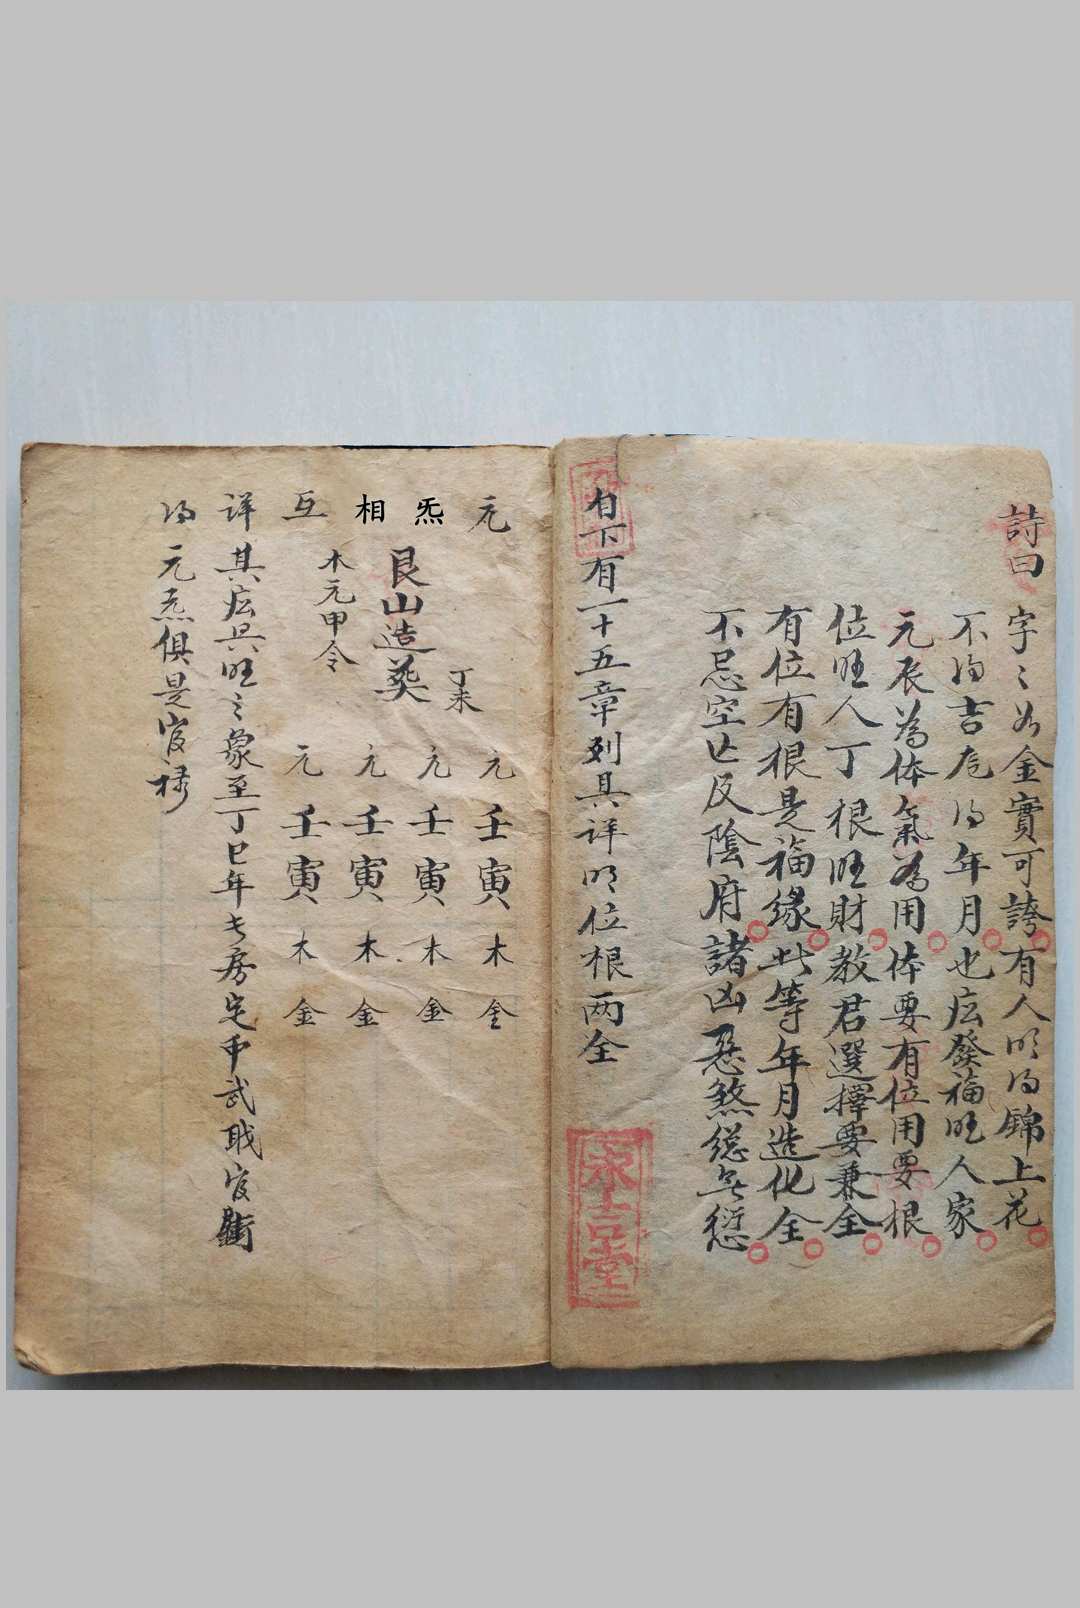 詩曰
字〻如金實可誇有人明得錦上花
不得吉
得年月也應發福旺人家
元辰為体氣為用体要有位用要根
位旺人丁根旺財教君選擇要兼全
有位有根是福緣此等年月造化全
不忌空亡反陰府諸凶惡煞總無愆
自下有一十五章列具詳明位根两全
永吉堂
元炁相互
艮山造葬
丁未
木元甲令
元壬寅木金
元壬寅木金
元壬寅木金
元壬寅木金
詳其应只旺之象至丁巳年七房
武職官銜
得元炁俱是官祿